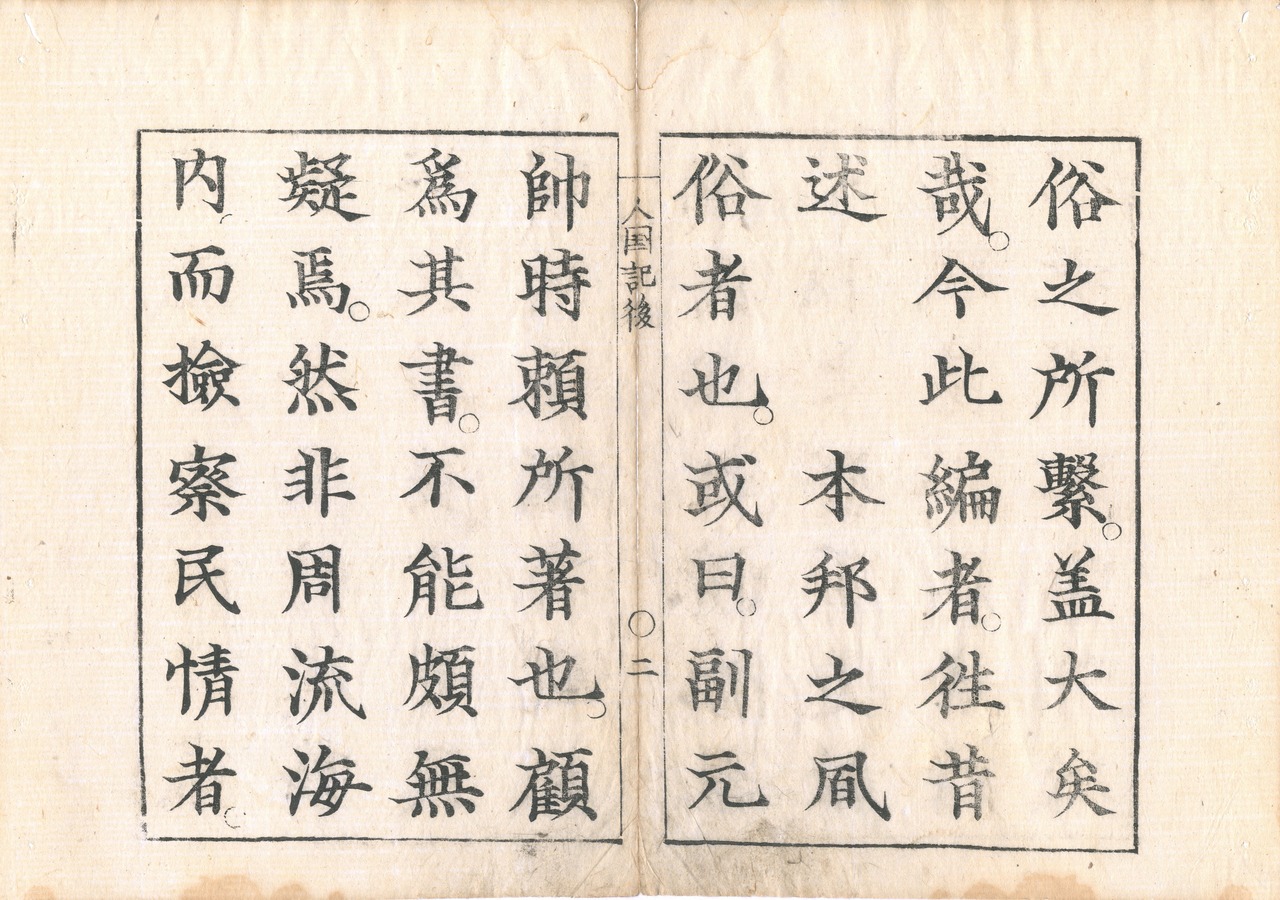 俗之所繫。盖大矣
哉。今此編者。徃昔
述　　本邦之凮
俗者也。或曰。副元
人国記後　〇二
帥時頼所著也。顧
爲其書。不能頗無
疑焉。然非周流海
内。而撿察民情者。